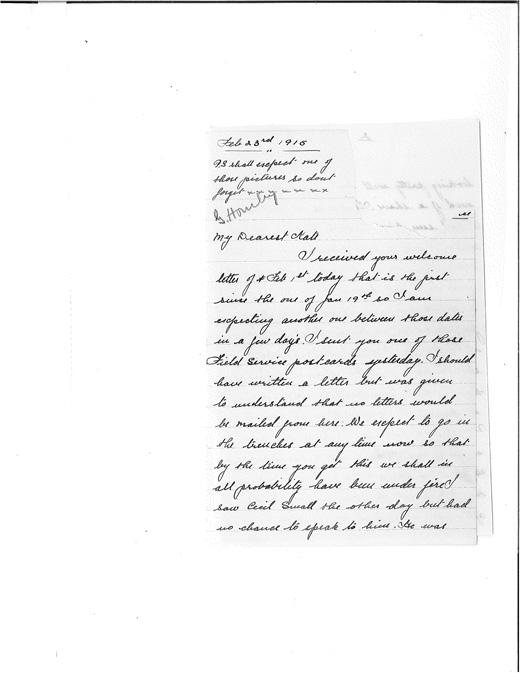 Feb 23rd 1915
P.S shall expect one of
those pictures so dont
forget x x x x x x x
My Dearest Kate
I received your welcome
letter of Feb 1st today that is the first
since the one of Jan 19th so I am
expecting another one between those dates
in a few days. I sent you one of those
Field Service postcards yesterday. I should
have written a letter but was given
to understand that no letters would
be mailed from here. We expect to go in
the trenches at any time now so that
by the time you get this we shall in
all probability have been under fire I
saw Cecil Small the other day but had
no chance to speak to him. He was